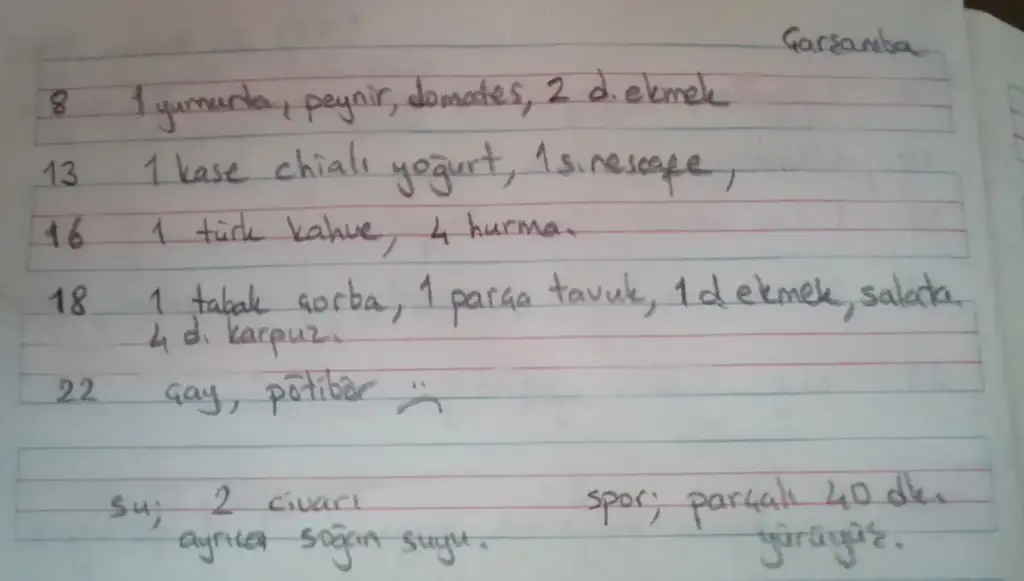 Çarşamba
8 1 yumurta, peynir, domates, 2 d. ekmek
13 1 kase chialı yoğurt, 1 s. nescafe,
16 1 türk kahve, 4 hurma.
18 1 tabak çorba, 1 parça tavuk, 1 d ekmek, salata
4 d. karpuz.
22 çay, pötibör :(
su; 2 civarı
ayrıca soğan suyu.
spor; parçalı 40 dk.
yürüyüş.